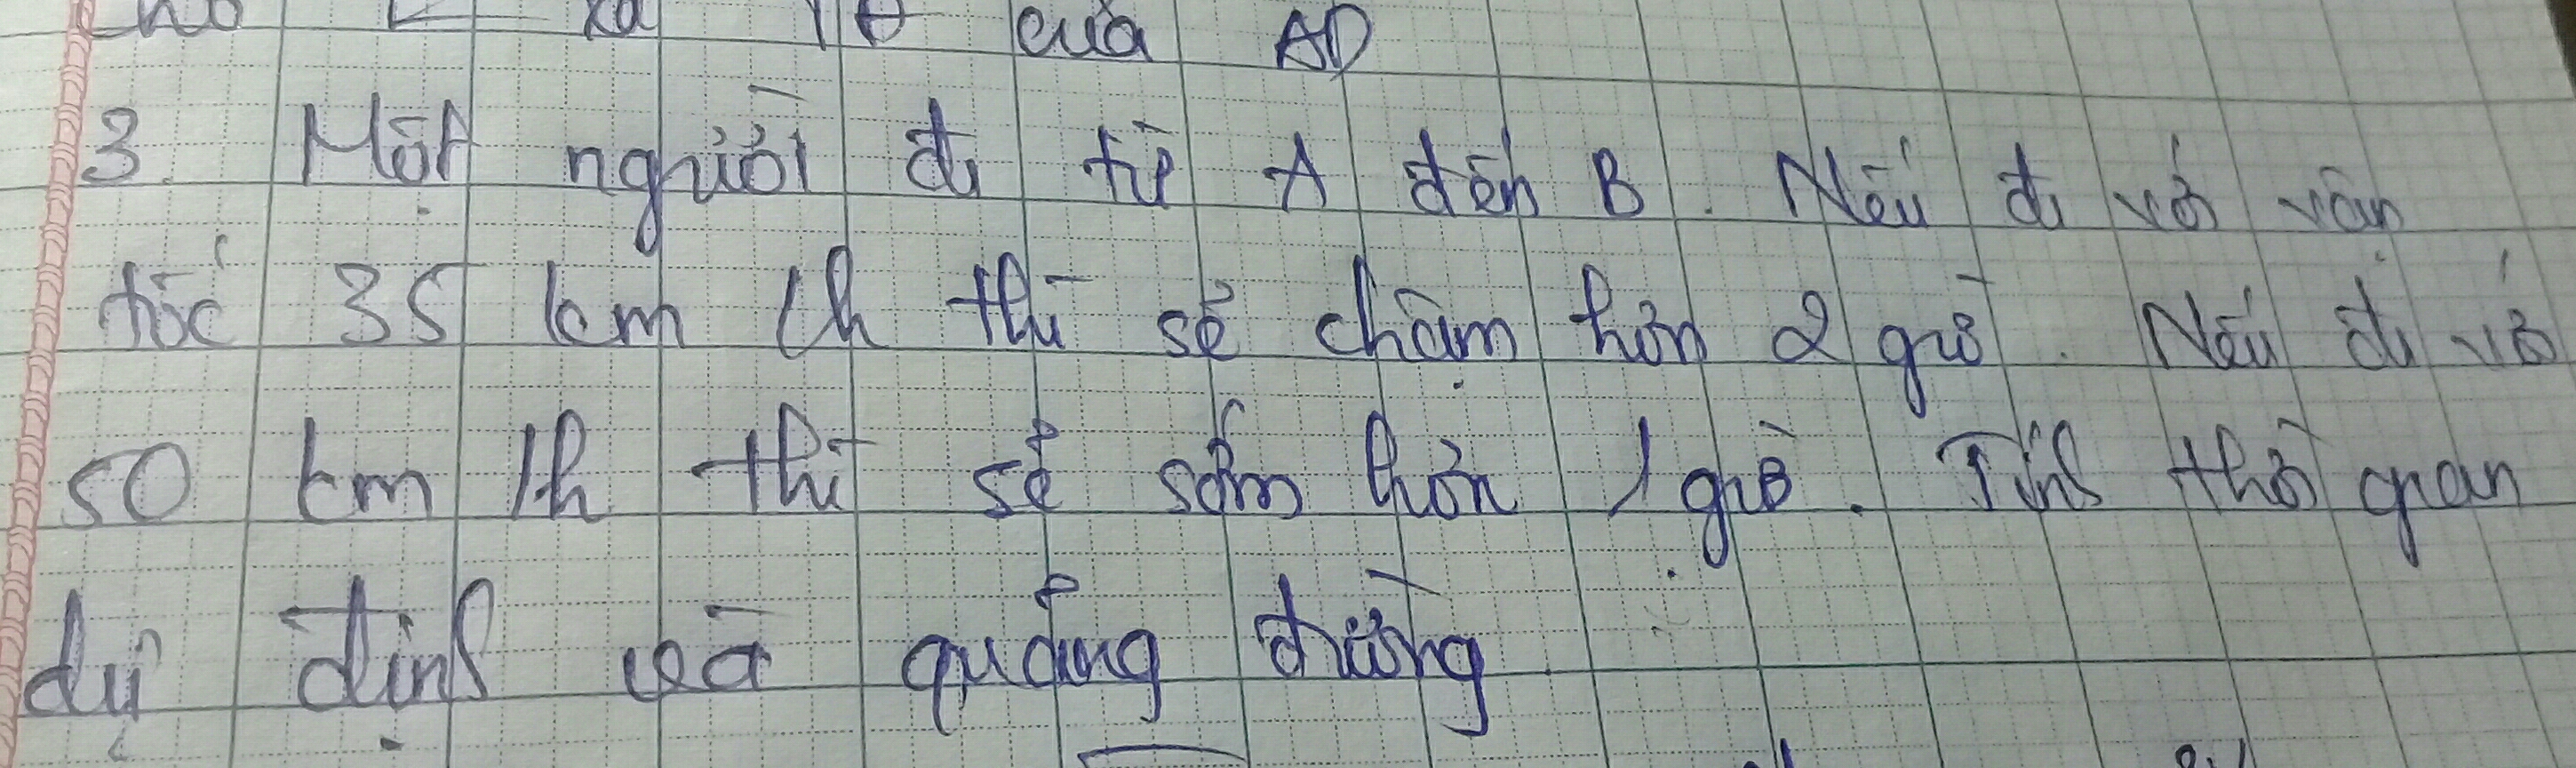 của AD
3. Một người đi từ A đến B. Nếu đi với vận
tốc 35 km /h thì sẽ chậm hơn 2 giờ. Nếu đi với
50 km /h thì sẽ sớm hơn 1 giờ. Tính thời gian
dự định và quảng đường